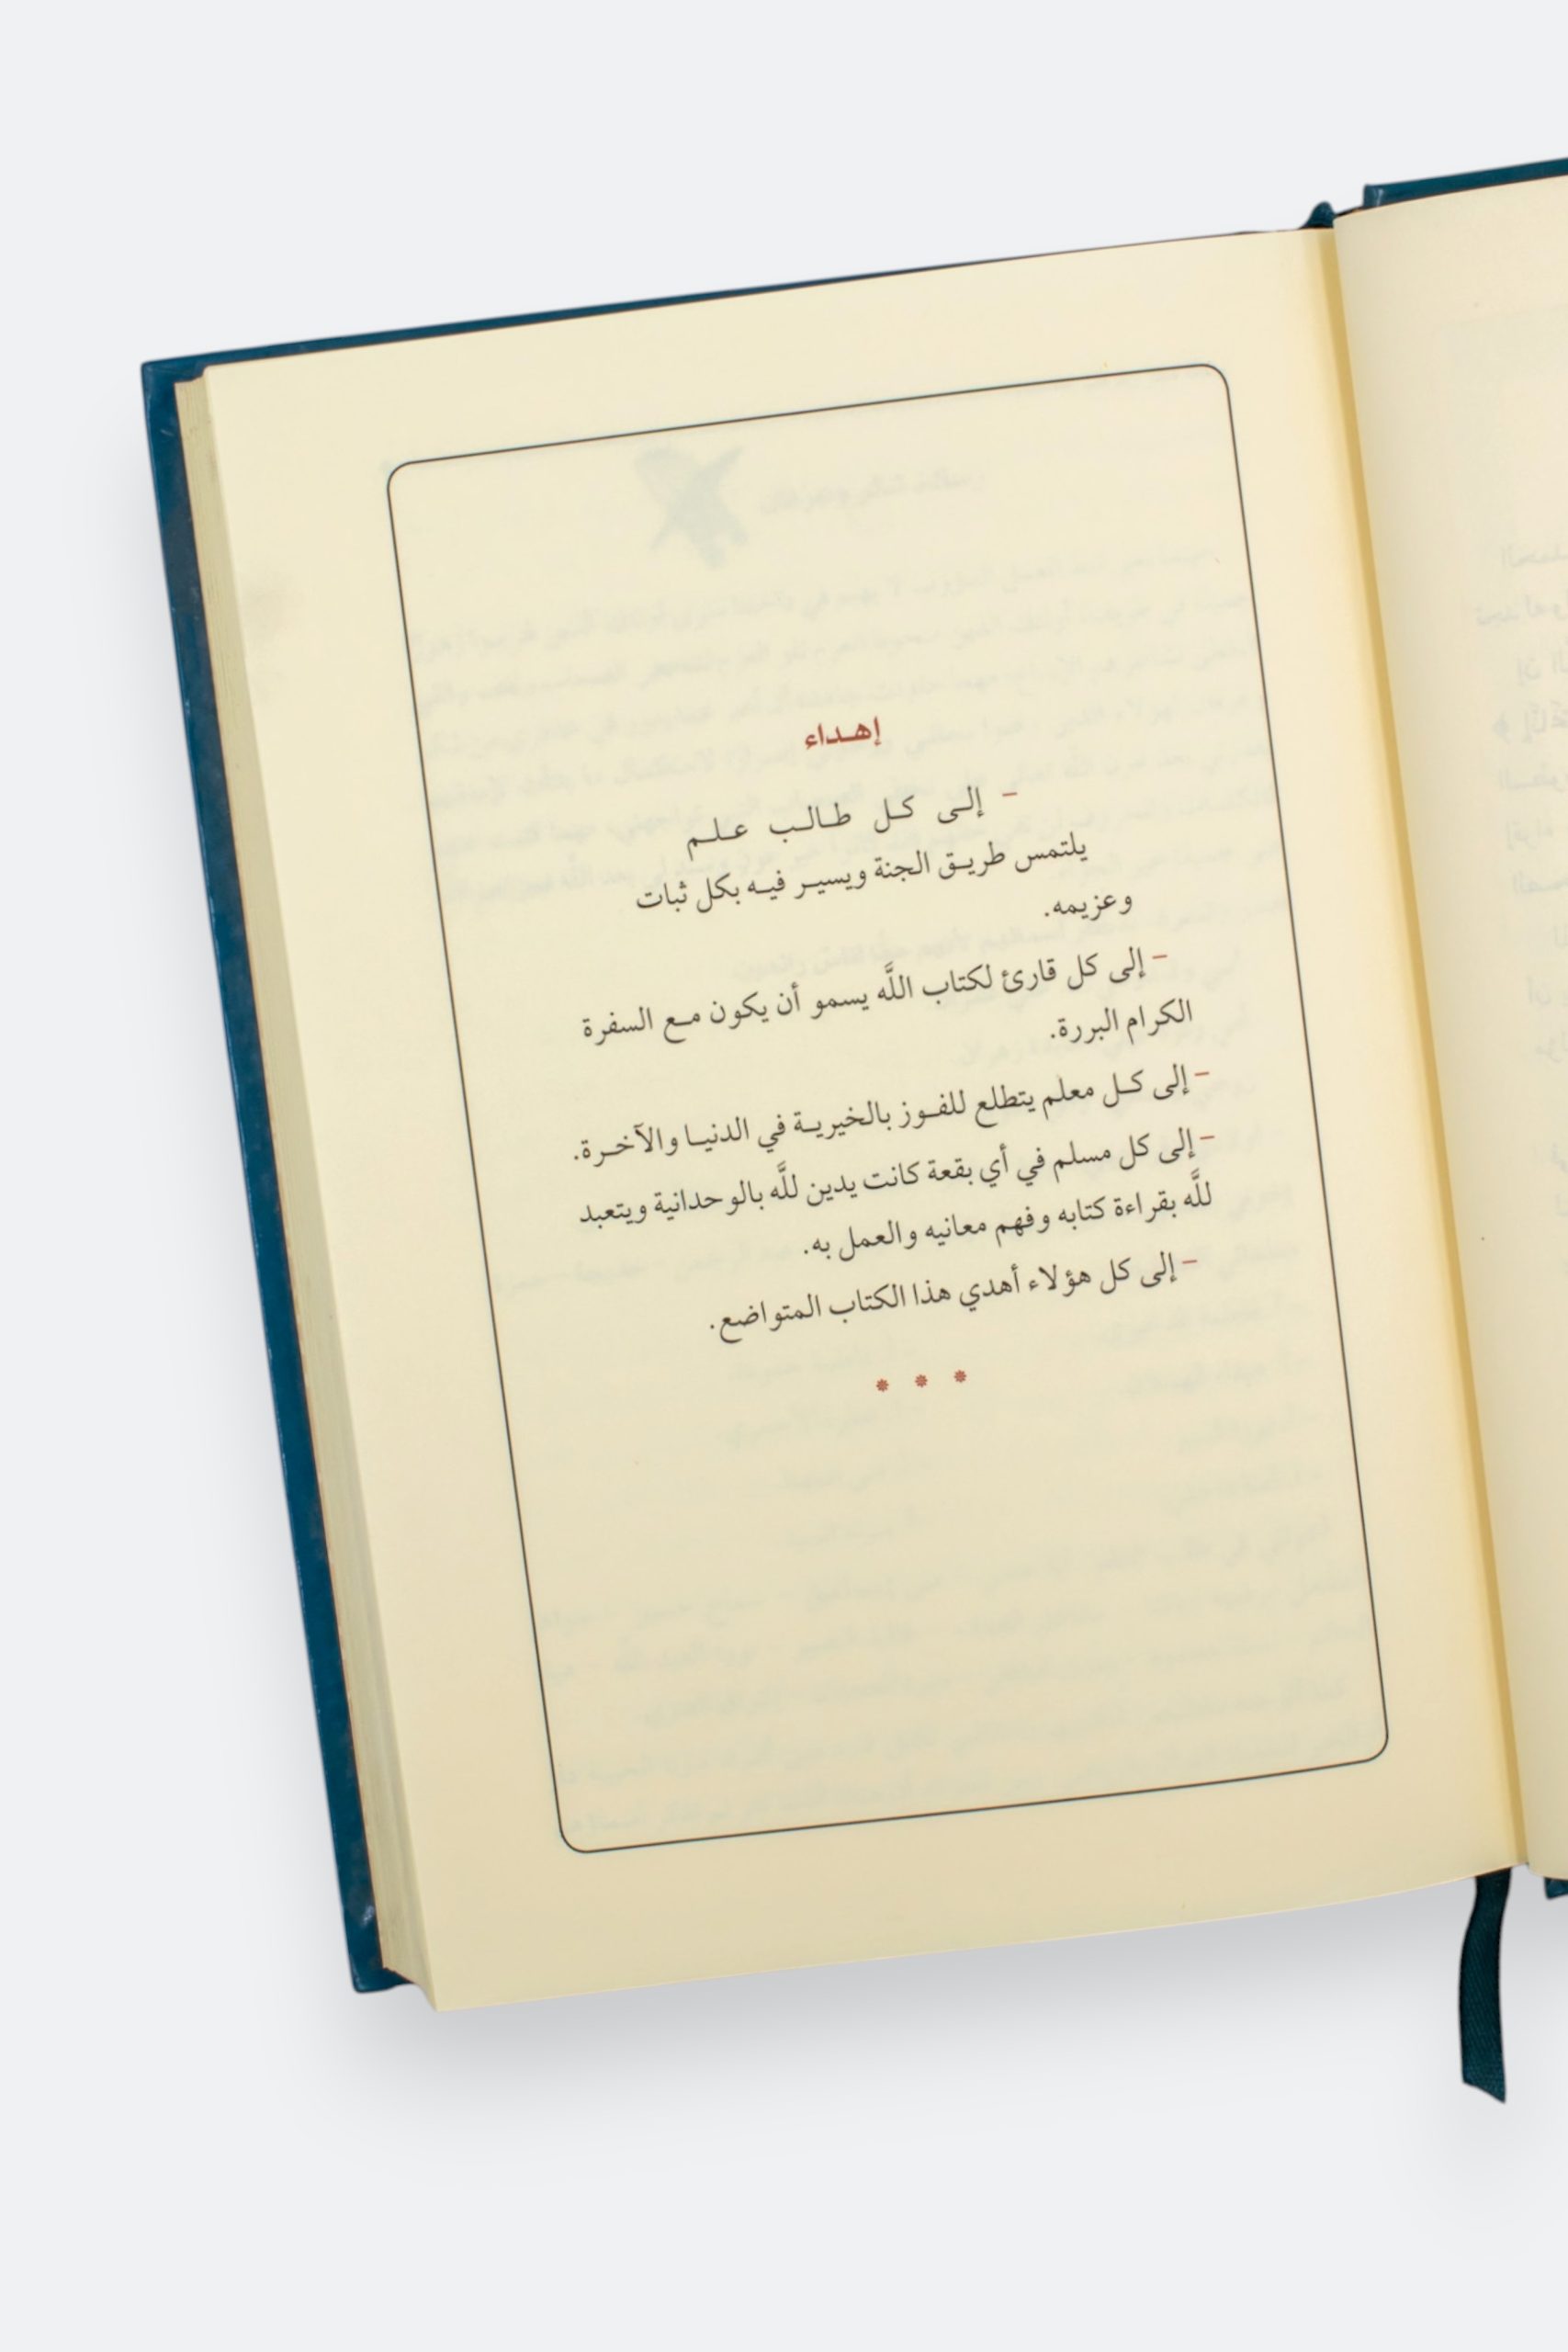 إهـداء
– إلـى كـل طـالـب عـلـم
يلتمس طريـق الجنة ويسيـر فيـه بكل ثبات
وعزيمه.
– إلى كل قارئ لكتاب اللَّه يسمو أن يكون مـع السفرة
الكرام البررة.
– إلى كـل معلم يتطلع للفـوز بالخيريـة في الدنيـا والآخـرة.
– إلى كل مسلم في أي بقعة كانت يدين للَّه بالوحدانية ويتعبد
للَّه بقراءة كتابه وفهم معانيه والعمل به.
– إلى كل هؤلاء أهدي هذا الكتاب المتواضع.
* * *